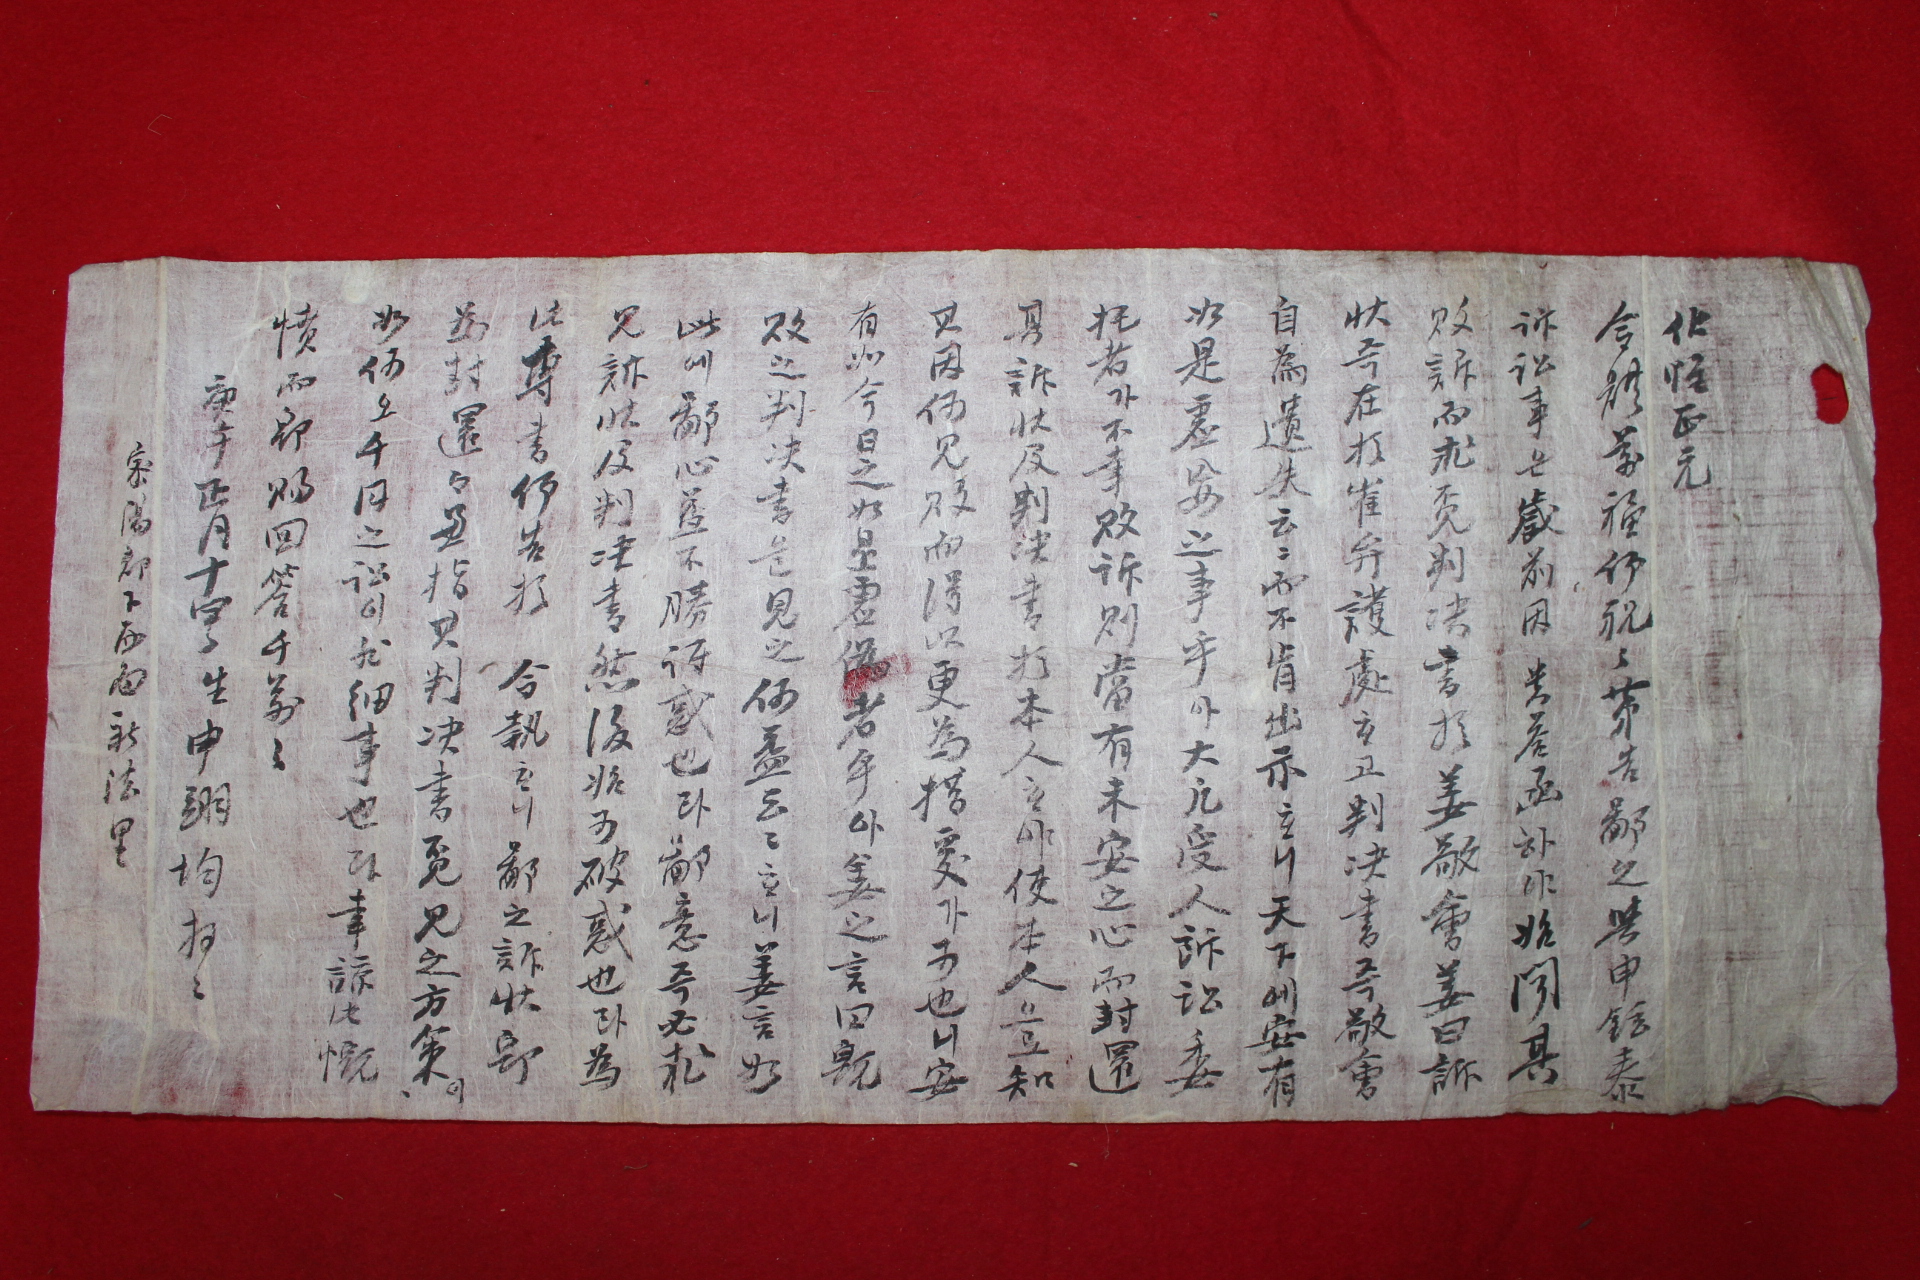 伏惟正元
令體萬福仰祝〻 第告鄙之與申鉉泰
訴訟事는 歲前因 貴答函하야 始聞其
敗訴而求覓判决書於姜敬會姜曰訴
狀즉在於崔弁護處立고 判决書즉敬會
自爲遺失云〻而不肯出示立니 天下에 安有
如是虛妄之事乎아 大凡受人訴訟委
托者가 不幸敗訴則當有未安之心而封還
其訴狀及判决書於本人立야 使本人으로知
其因何見敗而得以更爲措處가 可也니 安
有如今日之如是虛僞者乎아 姜之言曰 旣
敗之判决書는 見之何益云〻立니 姜言如
此에 鄙心益不勝訝惑也라 鄙意즉必於
見訴狀及判决書然後始可破惑也라 爲
此專書仰告於 令執立니 鄙之訴狀卽
爲封還고 且指其判决書覓見之方策
如何오 千円之訟이 非細事也라 幸諒此慨
憤而卽賜回答千萬〻
庚午正月十四日 生 申翊均 拜〻
宗陽郡下西面新法里